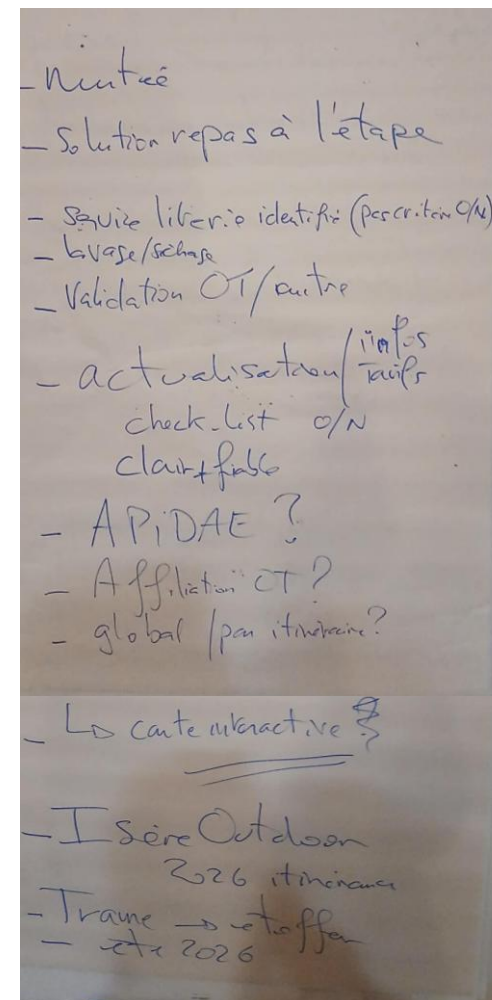 - Nuitée
- Solution repas à l'étape
- Service literie identifié (pas critère O/N)
- lavage/séchage
- Validation OT/autre
- actualisation/infos
Tarifs
check-list O/N
clair+fiable
- APiDAE ?
- Affiliation OT ?
- global /par itinéraire ?
- ↳ carte interactive
- Isère Outdoor
2026 itinérance
- Trame → etoffer
- été 2026